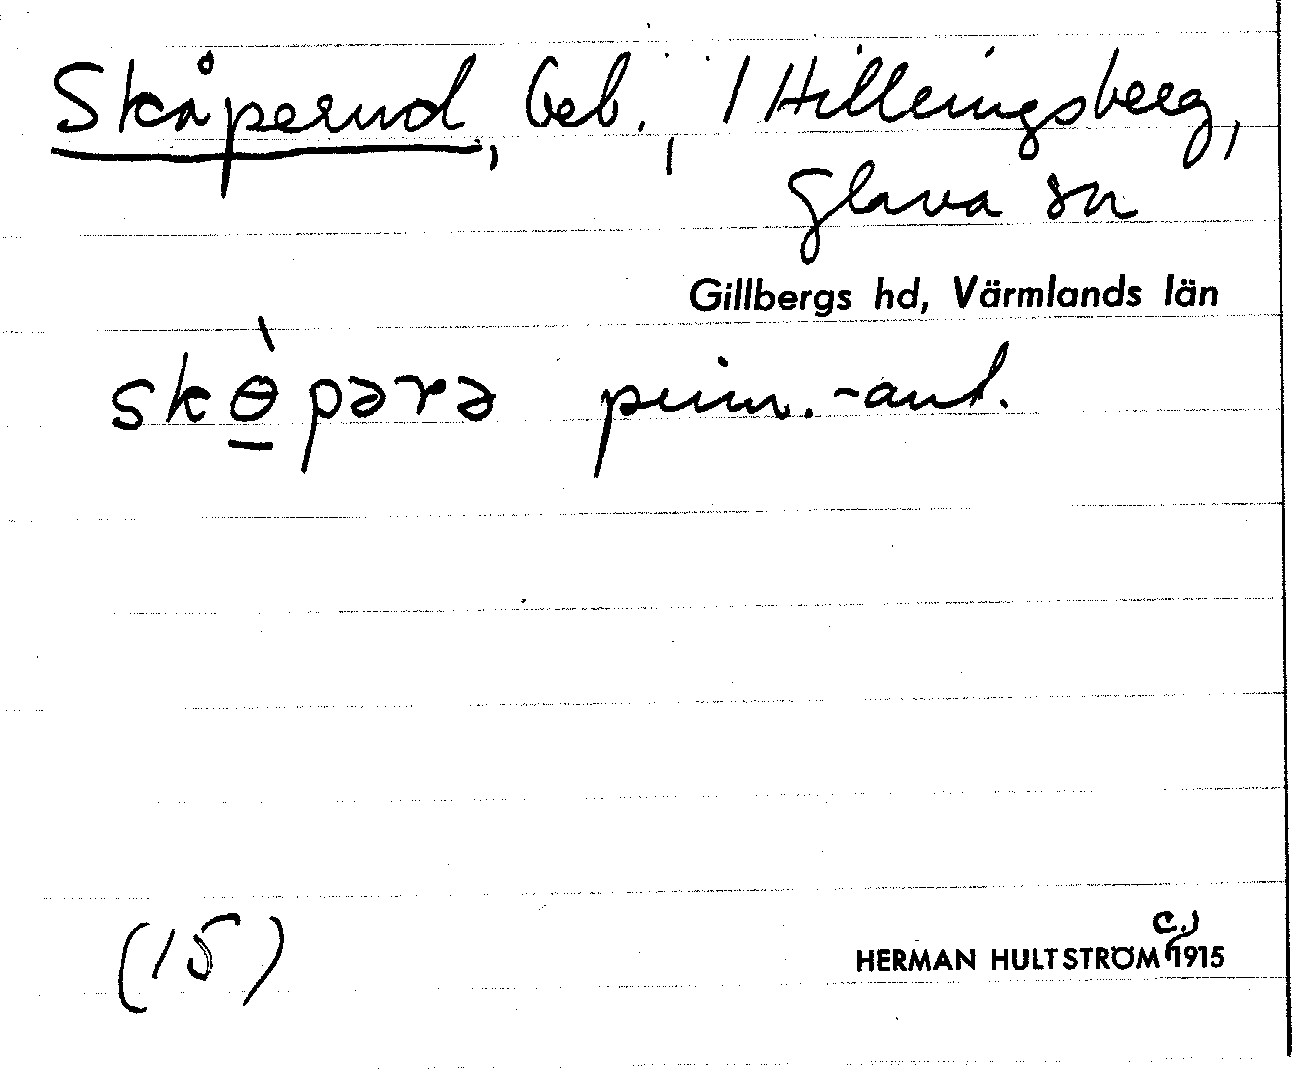 Skåperud, Geb., / Hilleringsberg,
Glava sn
Gillbergs hd, Värmlands län
skɵ̠̀pərə prim.-ant.
(15)
HERMAN HULTSTRÖM c.) 1915